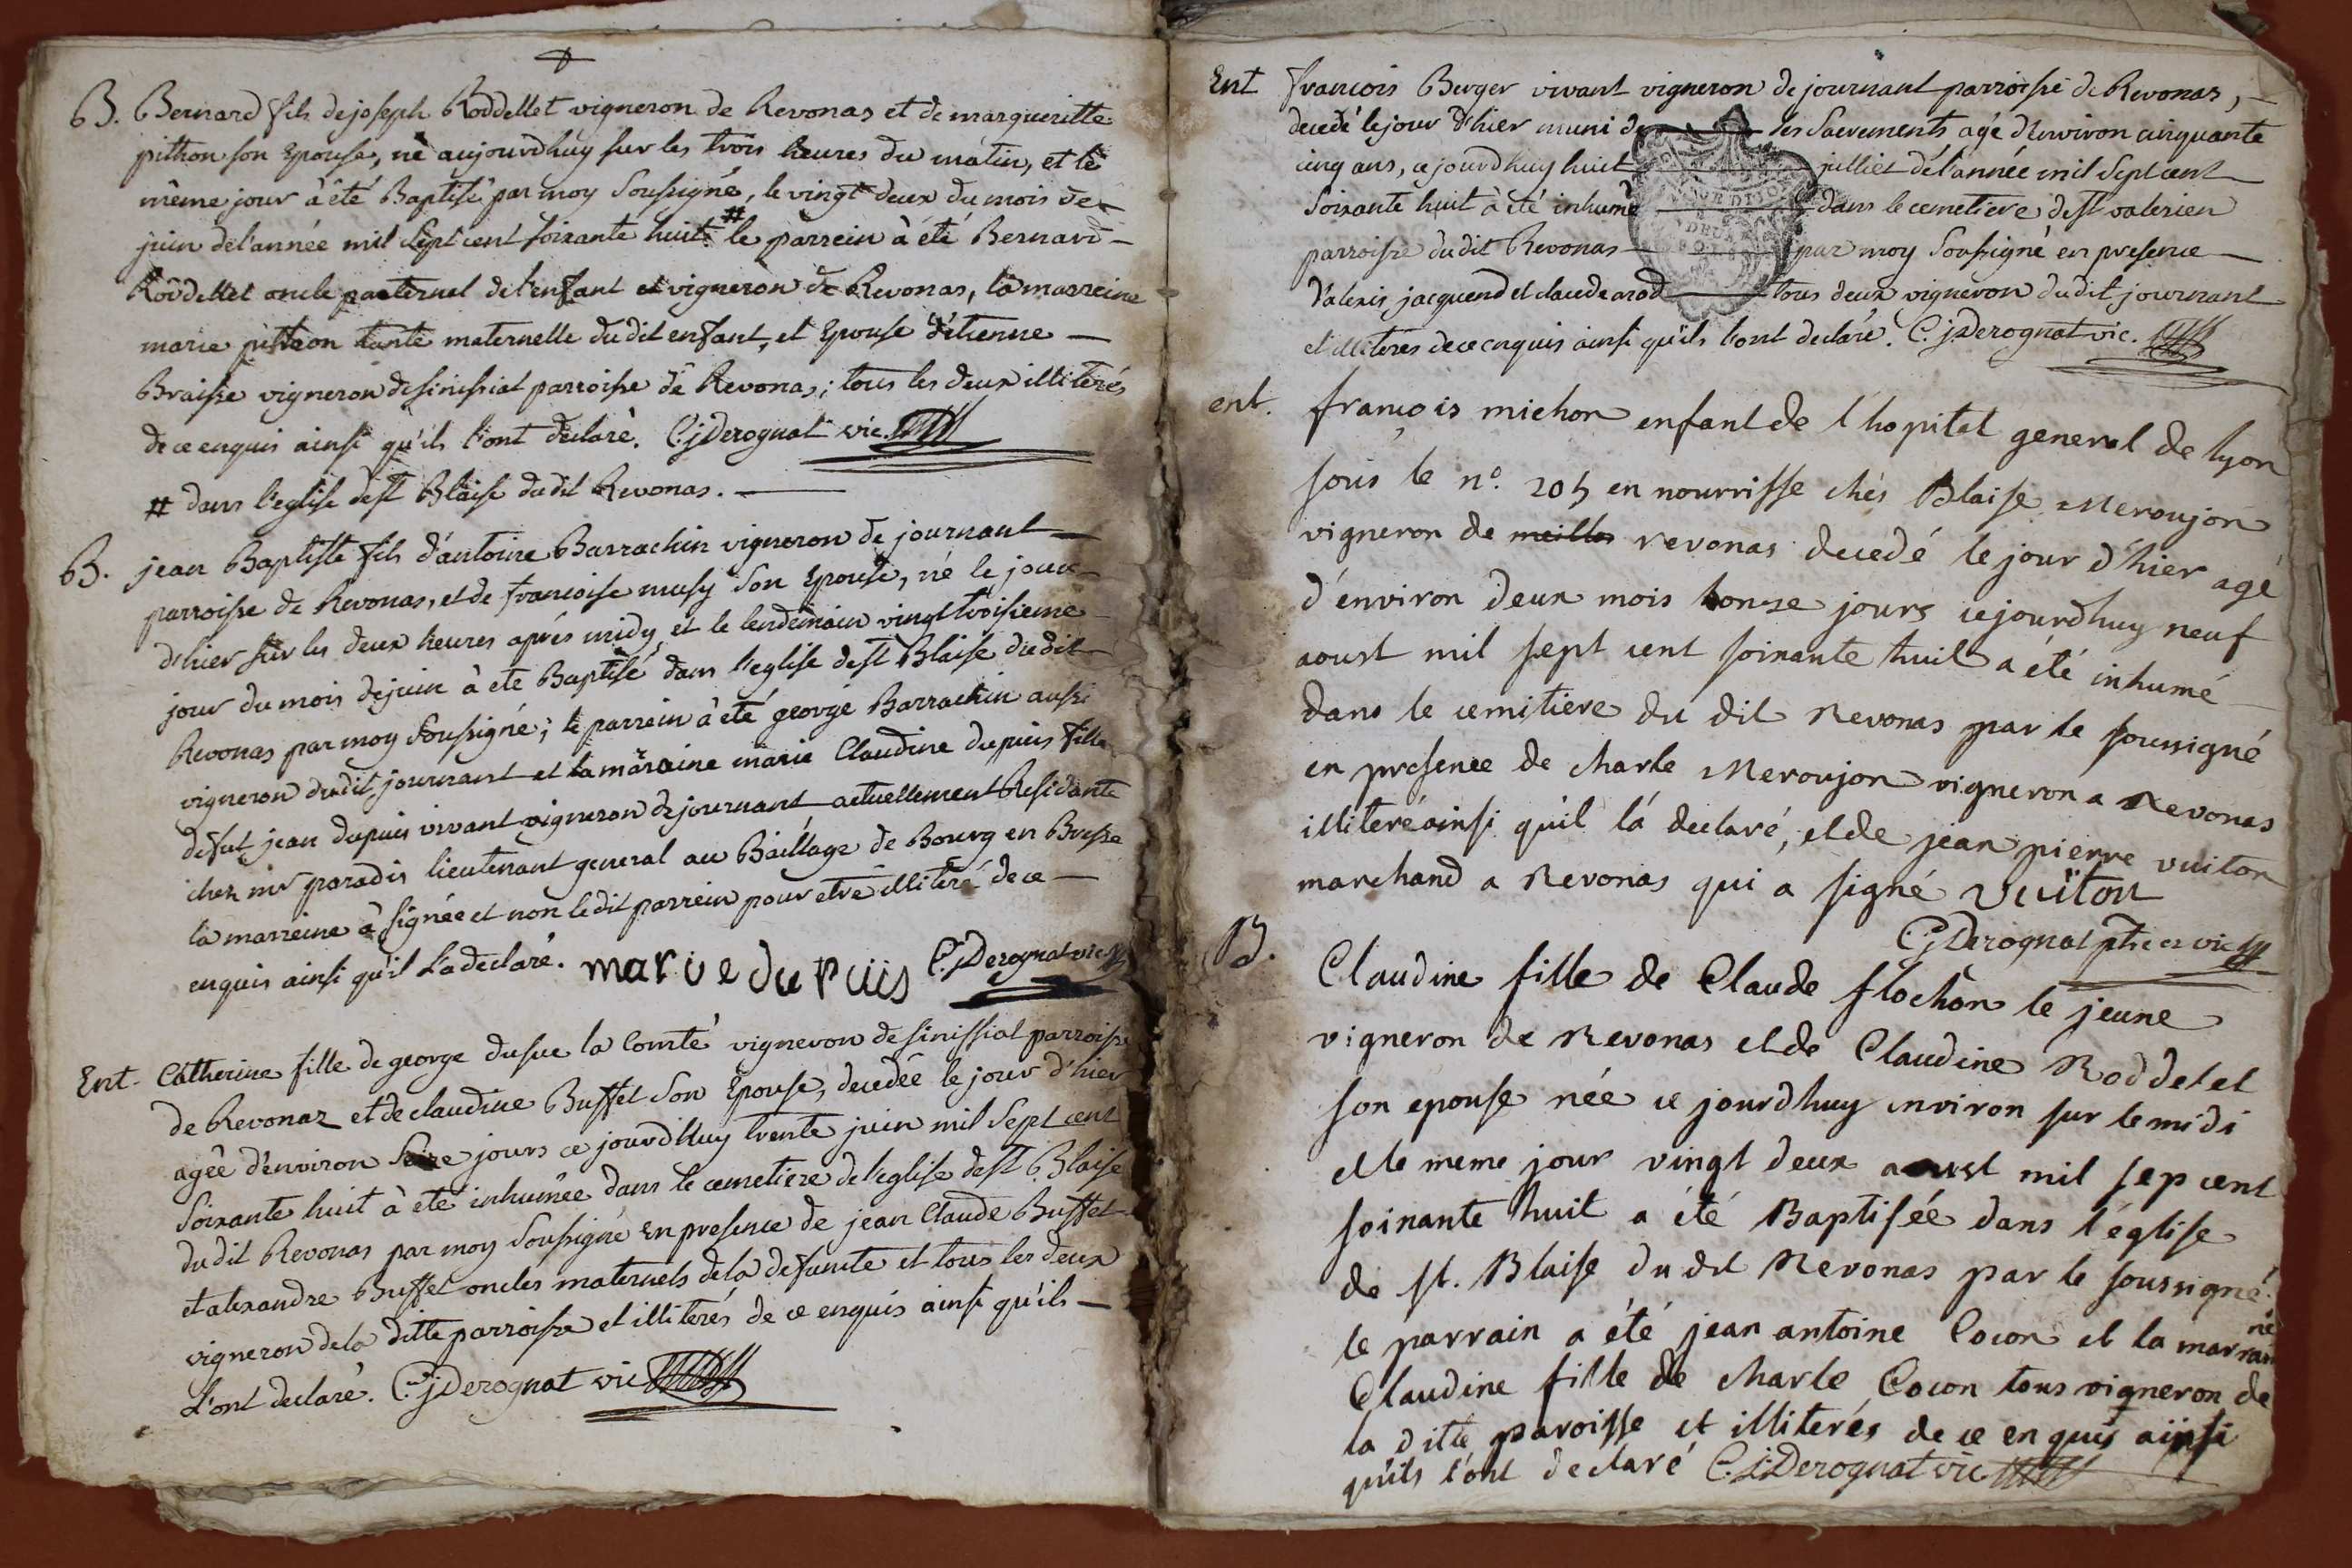 B. Bernard fils de joseph Roddellet vigneron de Revonas et de margueritte
pithon son Epouse, né aujourdhuy sur les trois heures du matin, et le
même jour à été Baptisé par moy Soussigné, le vingt deux du mois de
juin de l'année mil Sept cent soixante huit # le parrein à été Bernard
Roddellet oncle paternel de l'enfant et vigneron de Revonas, la marreine
marie pithon tante maternelle du dit enfant, et Epouse d'étienne
Braisse vigneron de sinissiat parroisse de Revonas; tous les deux illiterés
de ce enquis ainsi qu'ils l'ont déclaré. C. j Derognat vic.
# dans l'eglise de st Blaise du dit Revonas.
B. jean Baptiste fils d'antoine Barrachin vigneron de journant
parroisse de Revonas, et de francoise musy son Epouse, né le jour
d'hier sur les deux heures aprés midy, et le lendemain vingt troisieme
jour du mois de juin à eté Baptisé dans l'eglise de st Blaise du dit
Revonas par moy Soussigné; le parrein à eté george Barrachin aussi
vigneron dudit journant et la maraine marie Claudine dupuis fille
defut jean dupuis vivant vigneron de journant actuellement Residante
chez mr paradis lieutenant general au Baillage de Bourg en Bresse
la marreine à signée et non le dit parrein pour etre illiteré de ce
enquis ainsi qu'il L'a declaré. marie du puis C. j Derognat vic
Ent. Catherine fille de george dusue la Comté vigneron de sinissiat parroisse
de Revonaz et de claudine Buffet Son Epouse, decedée le jour d'hier
agée d'environ jours ce jourdhuy trente juin mil Sept cent
Soixante huit à eté inhumée dans le cemetiere de l'eglise de st Blaise
du dit Revonas par moy Soussigné En presence de jean Claude Buffet
et alexandre Buffet oncles maternels de la defunte et tous les deux
vigneron de la ditte parroisse et illiterés de ce enquis ainsi qu'ils
L'ont declaré. C. j Derognat vic
Ent francois Berger vivant vigneron de journant parroisse de Revonas,
decedé le jour d'hier muni de ses Sacrements agé d'Environ cinquante
cinq ans, ce jourdhuy huit julliet de l'année mil Sept cent
Soixante huit à été inhumé dans le cemetiere de st valerien
parroisse du dit Revonas par moy Soussigné en presence
d'alexis jacquend et claude arod tous deux vigneron du dit journant
et illiterés de ce enquis ainsi qu'ils l'ont declaré. C. j Derognat vic.
ent. françois michon enfant de l'hopital general de lyon
sous le n°. 205 en nourrisse chés Blaise Meroujon
vigneron de meillas revonas decedé le jour d'hier agé
d'environ deux mois honse jours cejourdhuy neuf
aoust mil sept cent soixante huit a été inhumé
dans le cemitiere du dit Revonas par le soussigné
en presence de charle Meroujon vigneron a Revonas
illiteré ainsi qu'il l'a declaré, et de jean pierre vuiton
marchand a Revonas qui a signé vuiton
C. j Derognat ptre et vic
B. Claudine fille de Claude flochon le jeune
vigneron de Revonas et de Claudine Roddelet
son epouse née ce jourdhuy environ sur le midi
et le meme jour vingt deux aoust mil sep cent
soixante huit a été Baptisée dans l'église
de st. Blaise du dit Revonas par le soussigné.
le parrain a été jean antoine Cocon et la marraine
Claudine fille de charle Cocon tous vigneron de
la ditte paroisse et illiterés de ce enquis ainsi
qu'ils l'ont declaré C. j. Derognat vic